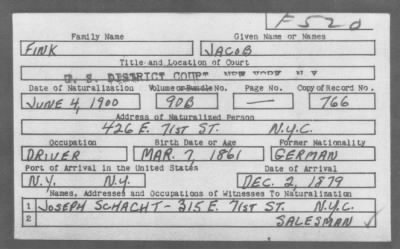 F520
Family Name Given Name or Names
FINK JACOB
Title and Location of Court
U. S. DISTRICT COURT NEW YORK N Y
Date of Naturalization Volume or Bundle No. Page No. Copy of Record No.
JUNE 4, 1900 90B — 766
Address of Naturalized Person
426 E. 71ST ST. N.Y.C.
Occupation Birth Date or Age Former Nationality
DRIVER MAR. 7, 1861 GERMAN
Port of Arrival in the United States Date of Arrival
N.Y. N.Y. DEC. 2, 1879
Names, Addresses and Occupations of Witnesses To Naturalization
1 JOSEPH SCHACHT - 315 E. 71ST ST. N.Y.C.
2 SALESMAN ✓